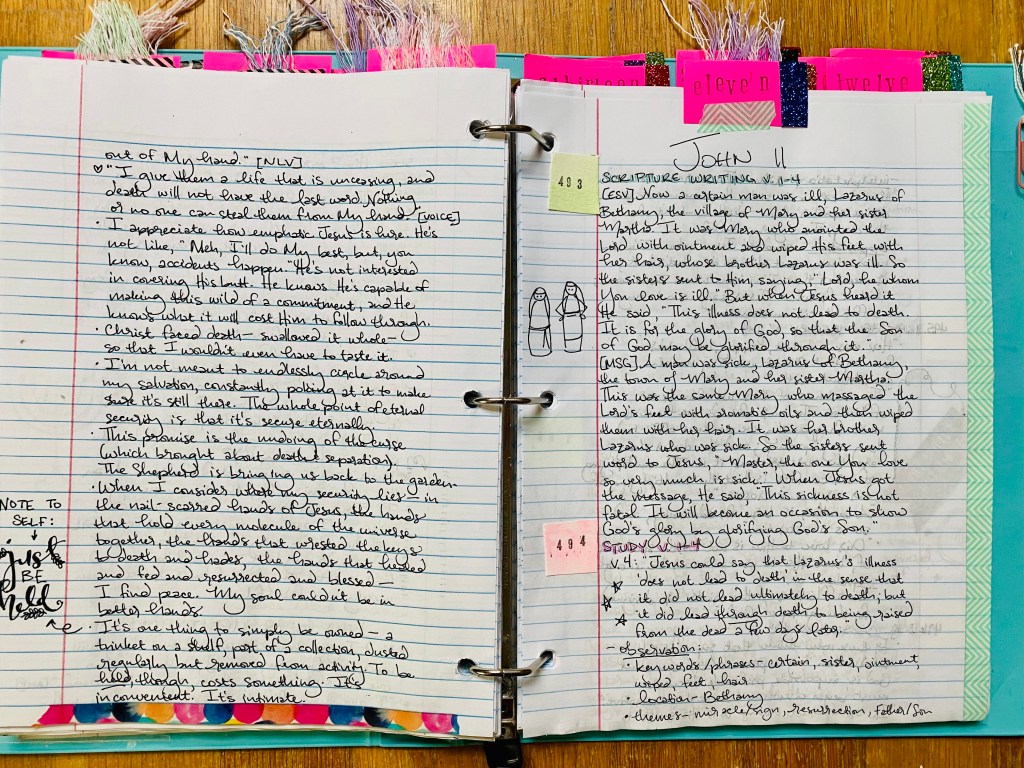 thirteen
eleven
twelve
out of My hand." [NLV]
♡ "I give them a life that is unceasing, and
death will not have the last word. Nothing
or no one can steal them from My hand. [VOICE]
· I appreciate how emphatic Jesus is here. He's
not like, "Meh, I'll do My best, but, you
know, accidents happen." He's not interested
in covering His butt. He knows He's capable of
making this wild of a commitment, and He
knows what it will cost Him to follow through.
· Christ fated death – swallowed it whole –
so that I wouldn't even have to taste it.
· I'm not meant to endlessly circle around
my salvation, constantly poking at it to make
sure it's still there. The whole point of eternal
security is that it's secure eternally.
· This promise is the undoing of the curse
(which brought about death & separation).
The Shepherd is bringing us back to the garden.
· When I consider where my security lies – in
the nail-scarred hands of Jesus, the hands
that hold every molecule of the universe
together, the hands that wrested the keys
to death and hades, the hands that healed
and fed and resurrected and blessed –
I find peace. My soul couldn't be in
better hands.
· It's one thing to simply be owned – a
trinket on a shelf, part of a collection, dusted
regularly but removed from activity. To be
held, though, costs something. It's
inconvenient. It's intimate.
NOTE TO
SELF:
just
BE
held
JOHN 11
493
SCRIPTURE WRITING V. 1-4
[ESV] Now a certain man was ill, Lazarus of
Bethany, the village of Mary and her sister
Martha. It was Mary who anointed the
Lord with ointment and wiped His feet with
her hair, whose brother Lazarus was ill. So
the sisters sent to Him, saying, "Lord, he whom
You love is ill." But when Jesus heard it
He said, "This illness does not lead to death.
It is for the glory of God, so that the Son
of God may be glorified through it."
[MSG] A man was sick, Lazarus of Bethany,
the town of Mary and her sister Martha.
This was the same Mary who massaged the
Lord's feet with aromatic oils and then wiped
them with her hair. It was her brother
Lazarus who was sick. So the sisters sent
word to Jesus, "Master, the one You love
so very much is sick." When Jesus got
the message, He said, "This sickness is not
fatal. It will become an occasion to show
God's glory by glorifying God's Son."
494
STUDY V. 1-4
v. 4: "Jesus could say that Lazarus's illness
'does not lead to death' in the sense that
it did not lead ultimately to death; but
it did lead through death to being raised
from the dead a few days later."
– observation:
· key words/phrases – certain, sister, ointment,
wiped, feet, hair
· location – Bethany
· themes – miracle/sign, resurrection, Father/Son